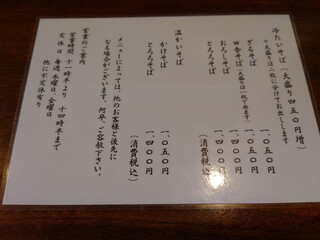 冷たいそば（大盛り 四五〇円増）
＊大盛りは二枚に分けてお出しします
ざるそば 一、〇五〇円
田舎そば（大盛りは一枚で出ます） 一、〇五〇円
おろしそば 一、四〇〇円
とろろそば 一、四〇〇円
（消費税込）
温かいそば
かけそば 一、〇五〇円
とろろそば 一、四〇〇円
（消費税込）
メニューによっては、他のお客様と後先に
なる場合がございます。何卒、ご容赦下さい。
営業のご案内
営業時間 十一時半より 十四時半まで
定休日 毎週 水曜日、金曜日
他に不定休有り